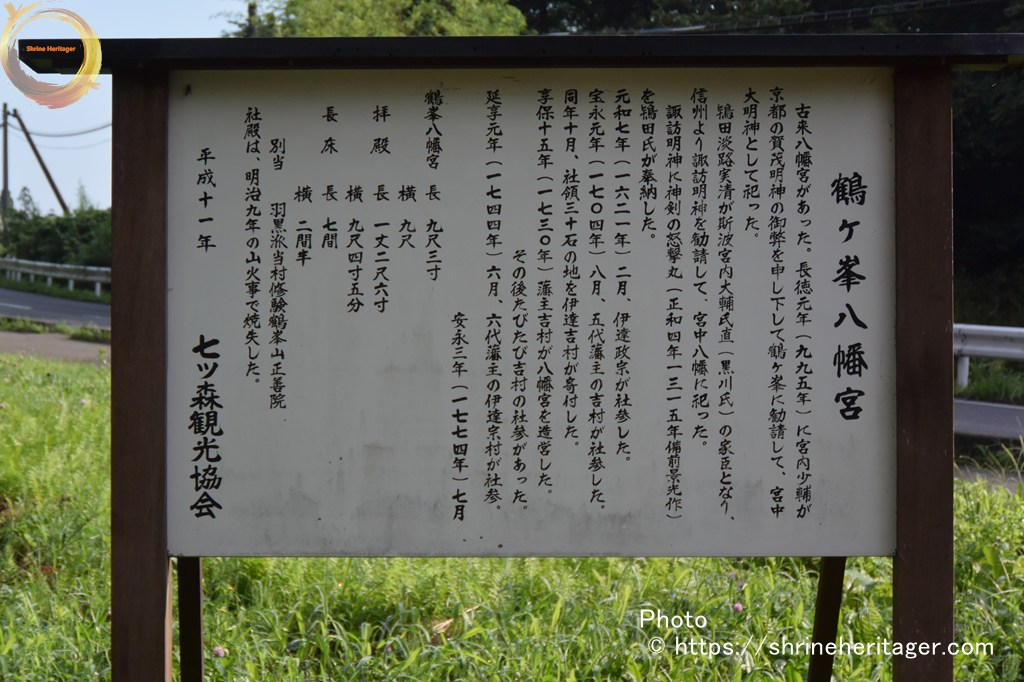 Shrine Heritager
鶴ケ峯八幡宮
古来八幡宮があった。長徳元年(九九五年)に宮内少輔が
京都の賀茂明神の御弊を申し下して鶴ケ峯に勧請して、宮中
大明神として祀った。
鴇田淡路実清が斯波宮内大輔氏直(黒川氏)の家臣となり、
信州より諏訪明神を勧請して、宮中八幡に祀った。
諏訪明神に神剣の怒撃丸(正和四年一三一五年備前景光作)
を鴇田氏が奉納した。
元和七年(一六二一年)二月、伊達政宗が社参した。
宝永元年(一七〇四年)八月、五代藩主の吉村が社参した。
同年十月、社領三十石の地を伊達吉村が寄付した。
享保十五年(一七三〇年)藩主吉村が八幡宮を造営した。
その後たびたび吉村の社参があった。
延享元年(一七四四年)六月、六代藩主の伊達宗村が社参。
安永三年(一七七四年)七月
鶴峯八幡宮 長 九尺三寸
横 九尺
拝殿 長 一丈二尺六寸
横 九尺四寸五分
長床 長 七間
横 二間半
別当 羽黒派当村修験鶴峯山正善院
社殿は、明治九年の山火事で焼失した。
平成十一年
七ツ森観光協会
Photo
© https://shrineheritager.com